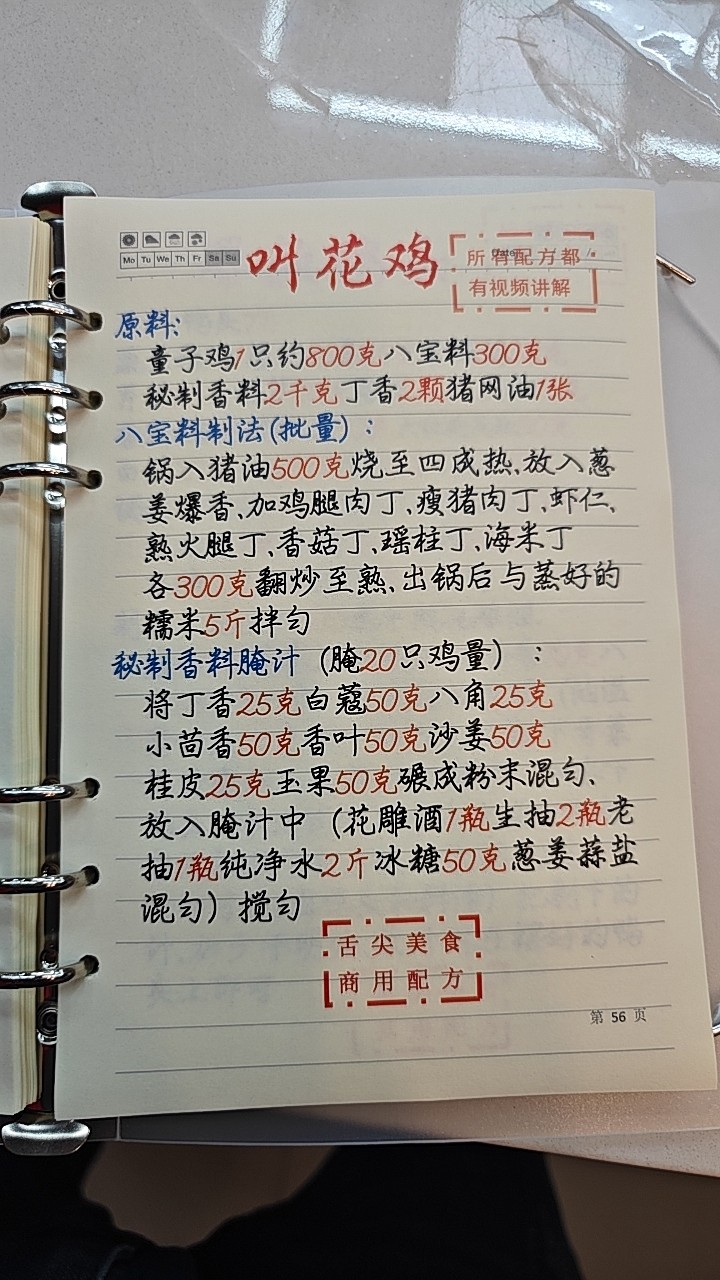 Mo Tu We Th Fr Sa Su
叫花鸡
所有配方都
有视频讲解
原料:
童子鸡1只约800克八宝料300克
秘制香料2千克丁香2颗猪网油1张
八宝料制法(批量):
锅入猪油500克烧至四成热、放入葱
姜爆香、加鸡腿肉丁、瘦猪肉丁、虾仁、
熟火腿丁、香菇丁、瑶柱丁、海米丁
各300克翻炒至熟、出锅后与蒸好的
糯米5斤拌匀
秘制香料腌汁(腌20只鸡量):
将丁香25克白蔻50克八角25克
小茴香50克香叶50克沙姜50克
桂皮25克玉果50克碾成粉末混匀、
放入腌汁中(花雕酒1瓶生抽2瓶老
抽1瓶纯净水2斤冰糖50克葱姜蒜盐
混匀)搅匀
舌尖美食
商用配方
第 56 页